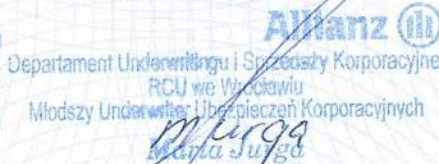 Allianz
Departament Underwritingu i Sprzedaży Korporacyjne
RCU we Wrocławiu
Młodszy Underwriter Ubezpieczeń Korporacyjnych
Maria